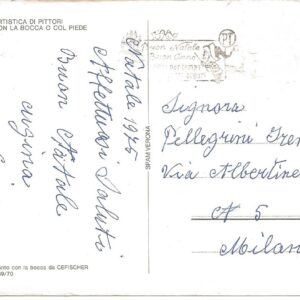 RTISTICA DI PITTORI
ON LA BOCCA O COL PIEDE
Natale 1975
Affettuosi Saluti
Buon Natale
cugina
nto con la bocca da CEFISCHER
69/70
SIRAM VERONA
Buon Natale
Buon Anno
PT
Signora
Pellegrini Iren
Via Albertine
N 5
Milan